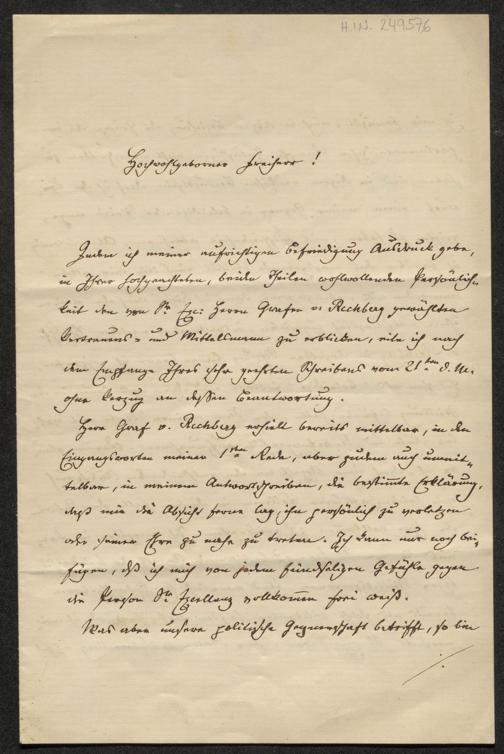 H.I.N. 249576
Hochwohlgeborner Freiherr!
Indem ich meiner aufrichtigen Befriedigung Ausdruck gebe,
in Ihrer hochgeachteten, beiden Theilen wohlwollenden Persönlich-
keit den von Sr. Exc: Herrn Grafen v. Rechberg gewählten
Vertrauens- und Mittelsmann zu erblicken, eile ich nach
dem Empfange Ihres sehr geehrten Schreibens vom 21ten d. M.
ohne Verzug an deßen Beantwortung.
Herr Graf v. Rechberg erhielt bereits mittelbar, in den
Eingangsworten meiner 1ten Rede, aber zudem auch unmit-
telbar, in meinem Antwortschreiben, die bestimmte Erklärung,
daß mir die Absicht ferne lag, ihn persönlich zu verletzen
oder seiner Ehre zu nahe zu treten. Ich kann nur noch bei-
fügen, daß ich mich von jedem feindseligen Gefühle gegen
die Person Sr. Excellenz vollkommen frei weiß.
Was aber unsere politische Gegnerschaft betrifft, so bin
./.